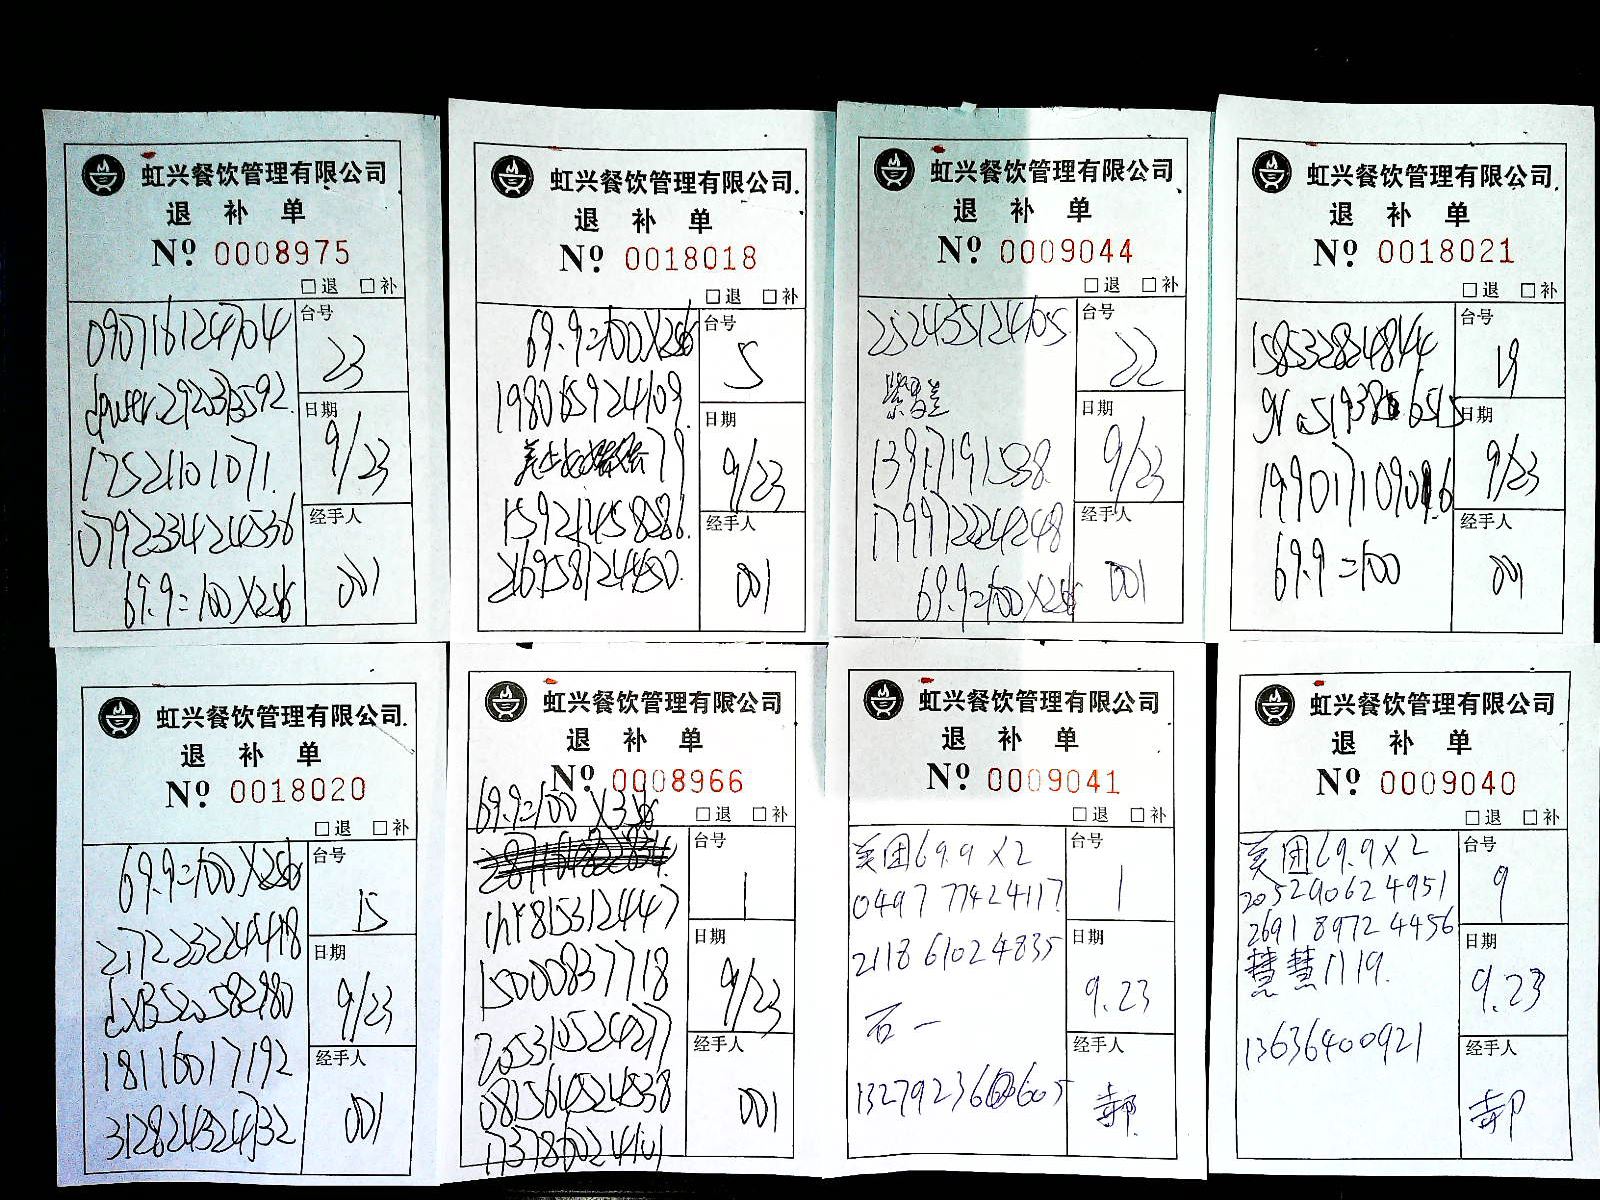 虹兴餐饮管理有限公司
退 补 单
Nº 0008975
□退 □补
090716124704
台号
23
dpuser.2920313592.
日期
9/23
17521101071.
0792334244536
经手人
001
虹兴餐饮管理有限公司.
退 补 单
Nº 0018018
□退 □补
69.9=100
台号
5
日期
9/23
15921458286.
经手人
001
虹兴餐饮管理有限公司
退 补 单
Nº 0009044
□退 □补
252435124705
台号
22
日期
9/23
13917191538.
179972224248
经手人
001
虹兴餐饮管理有限公司.
退 补 单
Nº 0018021
□退 □补
158532824844
台号
19
日期
9/23
69.9=100
经手人
001
虹兴餐饮管理有限公司.
退 补 单
Nº 0018020
□退 □补
台号
15
217223224418
日期
9/23
dxB520582980
18116017192
312824324732
经手人
001
虹兴餐饮管理有限公司
退 补 单
Nº 0008966
□退 □补
台号
1
lhy815312447
日期
9/23
15000837718
205310524277
081564524538
经手人
001
虹兴餐饮管理有限公司
退 补 单
Nº 0009041
□退 □补
美团69.9 X2
台号
1
0497 7742 4117
2118 6102 4835
日期
9.23
石一
经手人
郝
虹兴餐饮管理有限公司
退 补 单
Nº 0009040
□退 □补
美团69.9X2
台号
9
2052 9062 4951
2691 8972 4456
慧慧1119.
日期
9.23
13636400921
经手人
郝